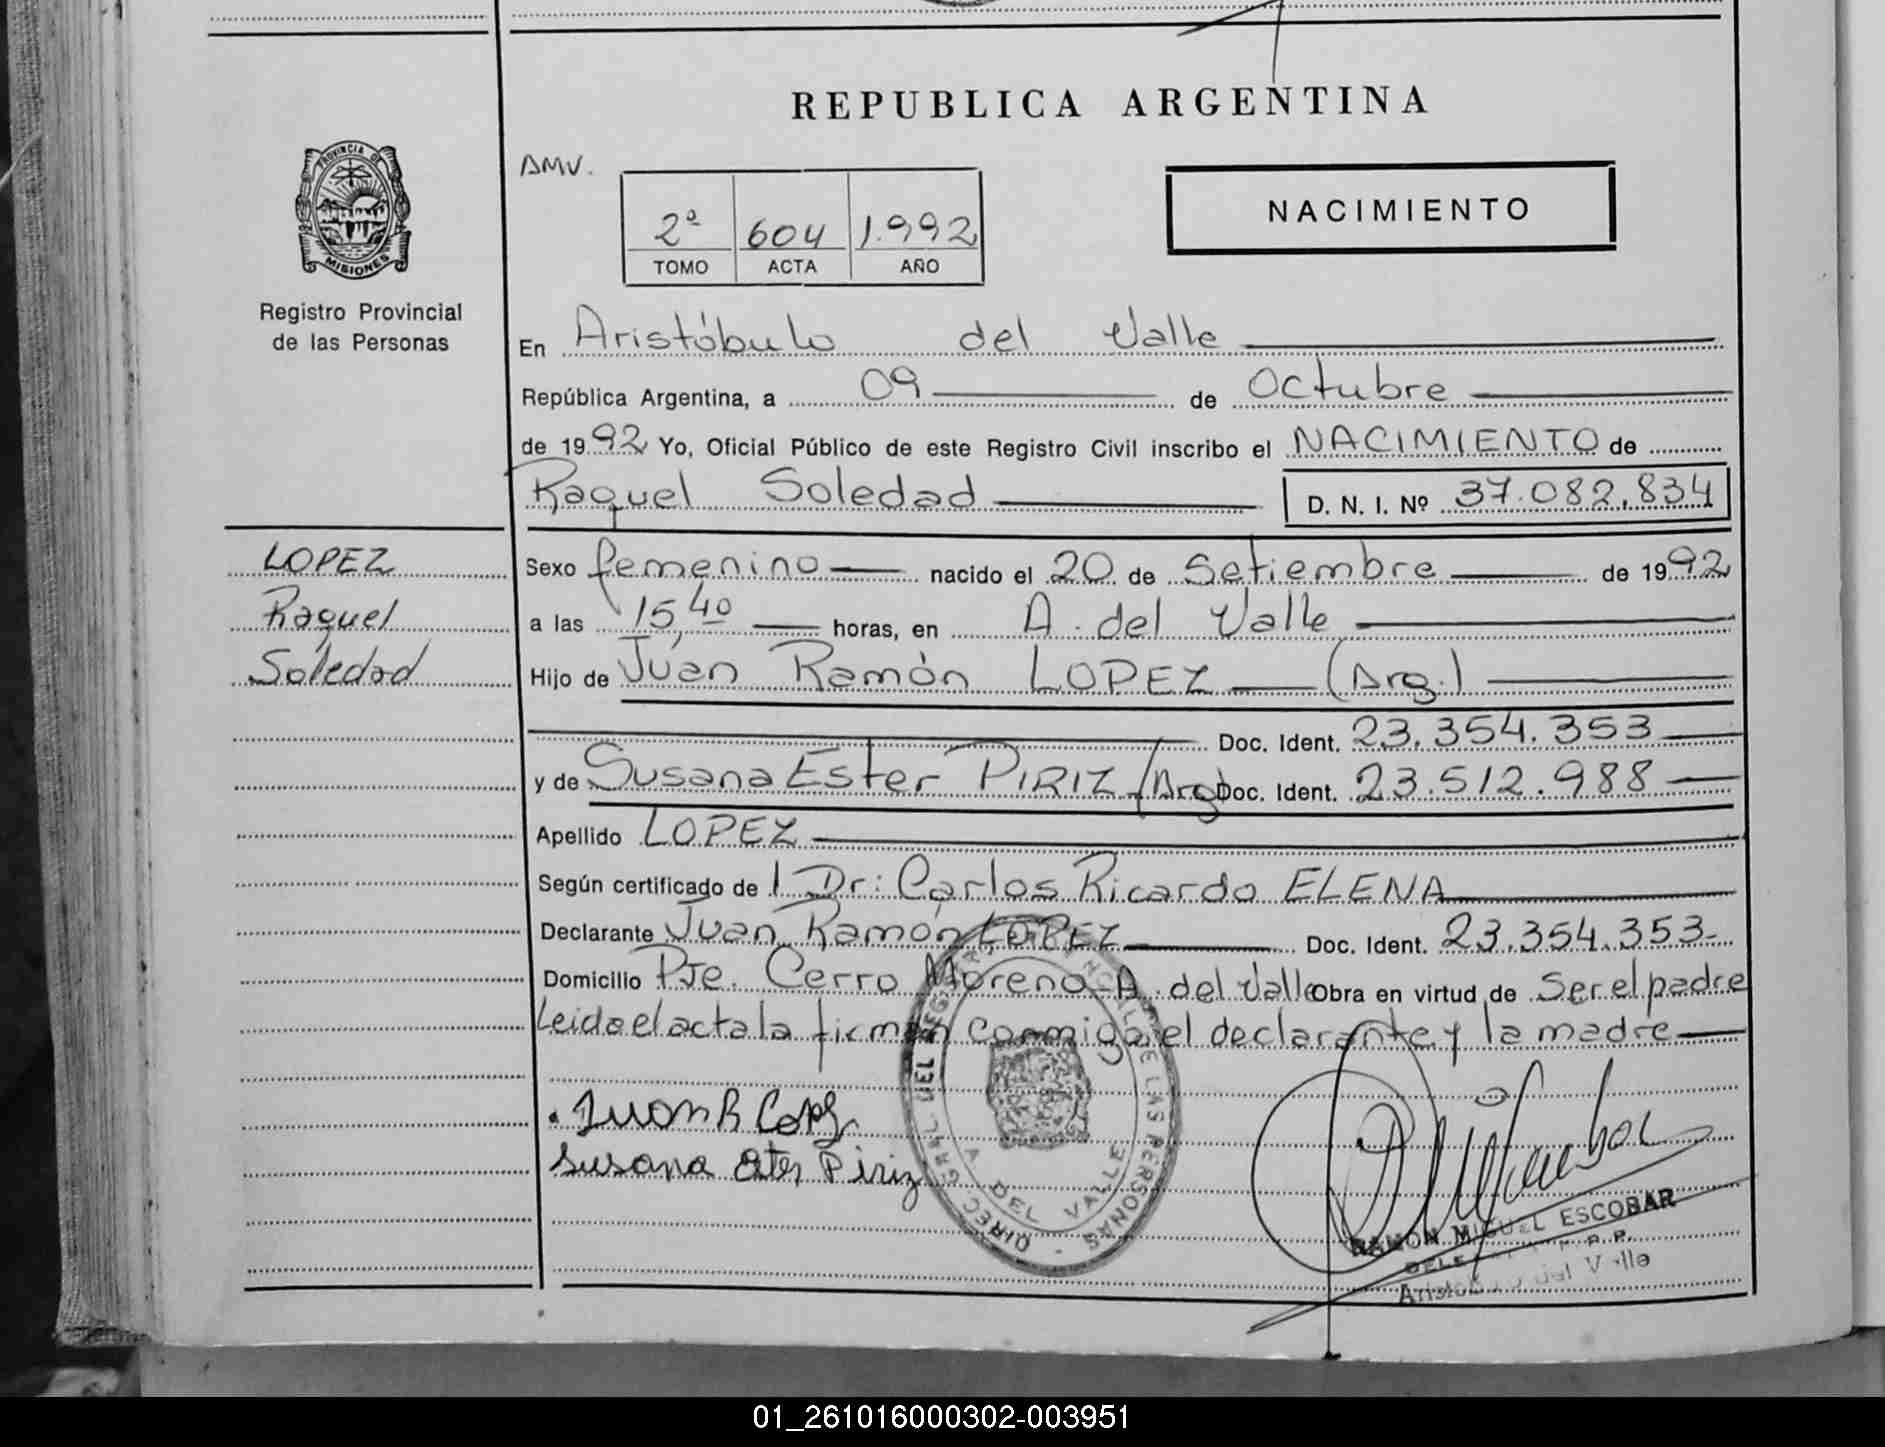 REPUBLICA ARGENTINA
PROVINCIA DE
MISIONES
Registro Provincial
de las Personas
AMV.
2ª 604 1.992
TOMO ACTA AÑO
NACIMIENTO
En Aristóbulo del Valle
República Argentina, a 09 de Octubre
de 1992 Yo, Oficial Público de este Registro Civil inscribo el NACIMIENTO de
Raquel Soledad D. N. I. Nº 37.082.834
LOPEZ
Raquel
Soledad
Sexo femenino nacido el 20 de Setiembre de 1992
a las 15,40 horas, en A. del Valle
Hijo de Juan Ramón LOPEZ (Arg.)
Doc. Ident. 23.354.353
y de Susana Ester PIRIZ (Arg) Doc. Ident. 23.512.988
Apellido LOPEZ
Según certificado de Dr: Carlos Ricardo ELENA
Declarante Juan Ramón LOPEZ Doc. Ident. 23.354.353-
Domicilio Pje. Cerro Moreno-A. del Valle Obra en virtud de Ser el padre
Leida el acta la firman conmigo, el declarante y la madre
Juan R Lopez
Susana Ester Piriz
DIREC. GRAL. DEL REG. DE LAS PERSONAS
A DEL VALLE
RAMON MIGUEL ESCOBAR
Aristóbulo del Valle
01_261016000302-003951